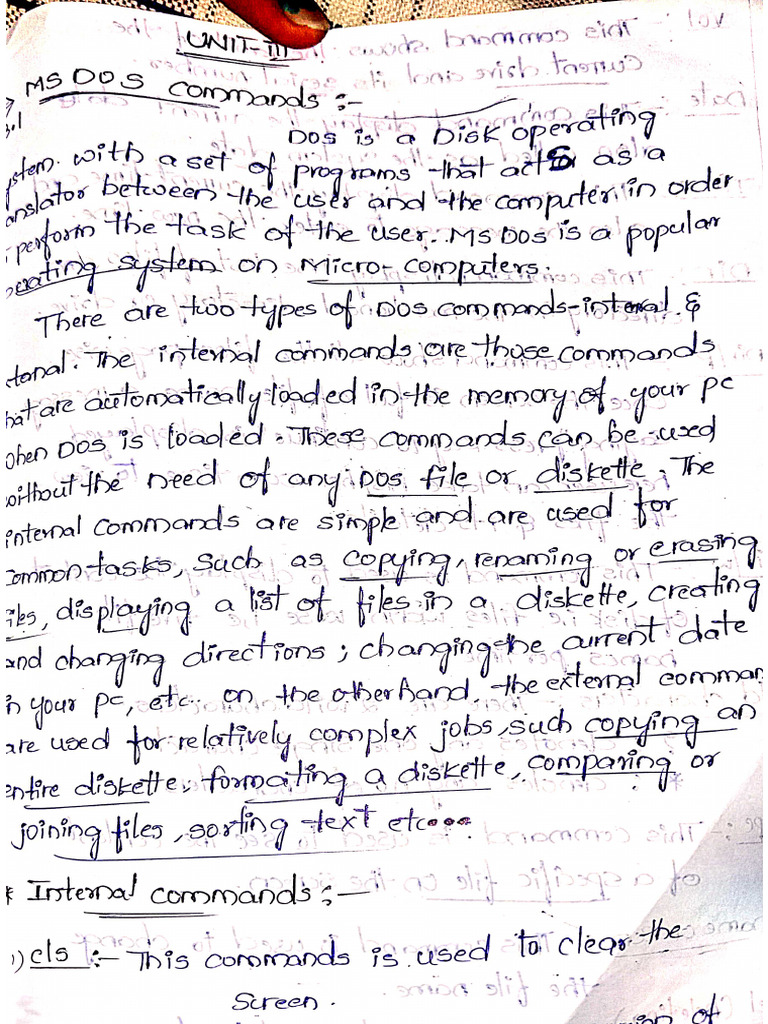 UNIT-III
MS DOS commands :-
DOS is a Disk operating
ystem. with a set of programs that acts as a
anslator between the user and the computer, in order
perform the task of the user. MS DOS is a popular
erating system on Micro-computers.
There are two types of DOS commands-interal &
tonal. The internal commands are those commands
hat are automatically loaded in the memory of your pc
when DOS is loaded. These commands can be used
without the need of any DOS file or diskette. The
internal commands are simple and are used for
common tasks, such as copying, renaming or erasing
iles, displaying a list of files in a diskette, creating
and changing directions; changing the current date
in your pc, etc. on the other hand, the external comman
are used for relatively complex jobs, such copying an
entire diskette, formating a diskette, comparing or
joining files, sorting text etc....
* Internal commands :-
1) cls :- This commands is used to clear the
screen.
of